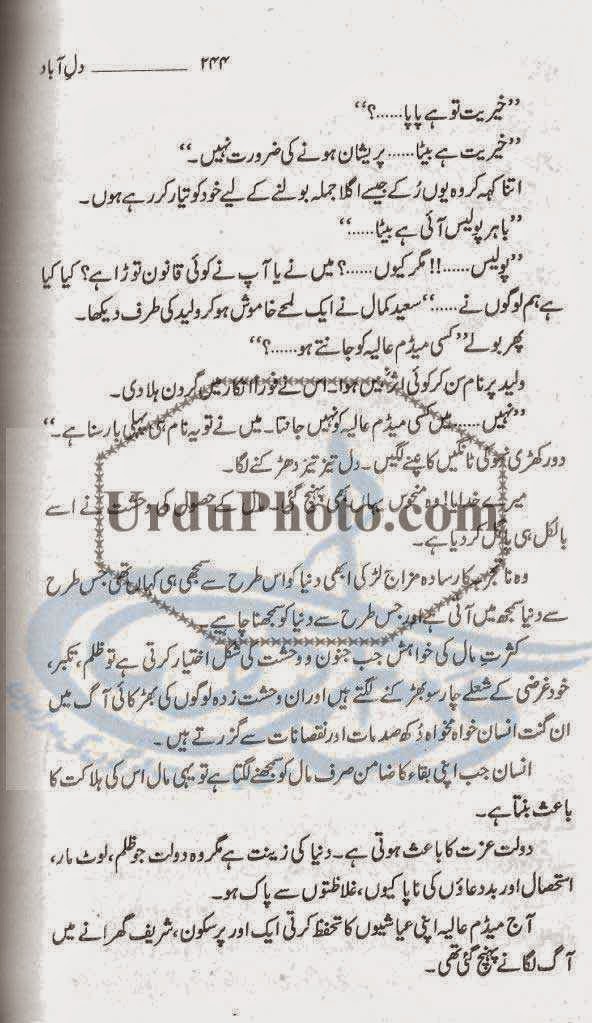 ۲۴۴ ________ دلِ آباد
”خیریت تو ہے پاپا......؟“
”خیریت ہے بیٹا...... پریشان ہونے کی ضرورت نہیں۔“
اتنا کہہ کر وہ یوں رُکے جیسے اگلا جملہ بولنے کے لیے خود کو تیار کر رہے ہوں۔
”باہر پولیس آئی ہے بیٹا......“
”پولیس......!! مگر کیوں......؟ میں نے یا آپ نے کوئی قانون توڑا ہے؟ کیا کیا
ہے ہم لوگوں نے......“ سعید کمال نے ایک لمحے خاموش ہو کر ولید کی طرف دیکھا۔
پھر بولے ”کسی میڈم عالیہ کو جانتے ہو......؟“
ولید پر نام سن کر کوئی اثر نہیں ہوا۔ اس نے فوراً انکار میں گردن ہلا دی۔
”نہیں...... میں کسی میڈم عالیہ کو نہیں جانتا۔ میں نے تو یہ نام ہی پہلی بار سنا ہے۔“
دور کھڑی کی ٹانگیں کانپنے لگیں۔ دل تیز تیز دھڑکنے لگا۔
میرے خدایا! وہ منحوس یہاں بھی پہنچ گئی۔ کے حصول کی وحشت نے اسے
بالکل ہی پاگل کر دیا ہے۔
وہ ناتجربہ کار سادہ مزاج لڑکی ابھی دنیا کو اس طرح سے سمجھی ہی کہاں تھی جس طرح
سے دنیا سمجھ میں آتی ہے اور جس طرح سے دنیا کو سمجھنا چاہیے۔
کثرتِ مال کی خواہش جب جنون و وحشت کی شکل اختیار کرتی ہے تو ظلم، تکبر،
خودغرضی کے شعلے چار سو بھڑکنے لگتے ہیں اور ان وحشت زدہ لوگوں کی بھڑکائی آگ میں
ان گنت انسان خواہ مخواہ دُکھ صدمات اور نقصانات سے گزرتے ہیں۔
انسان جب اپنی بقاء کا ضامن صرف مال کو سمجھنے لگتا ہے تو یہی مال اس کی ہلاکت کا
باعث بنتا ہے۔
دولت عزت کا باعث ہوتی ہے۔ دنیا کی زینت ہے مگر وہ دولت جو ظلم، لوٹ مار،
استحصال اور بددعاؤں کی ناپاکیوں، غلاظتوں سے پاک ہو۔
آج میڈم عالیہ اپنی عیاشیوں کا تحفظ کرتی ایک اور پرسکون، شریف گھرانے میں
آگ لگانے پہنچ گئی تھی۔
UrduPhoto.com